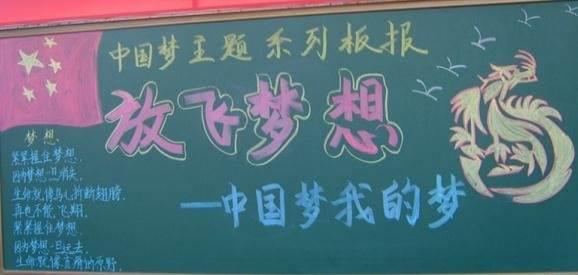 中国梦主题系列板报
放飞梦想
—中国梦我的梦
梦想
紧紧握住梦想,
因为梦想一旦消失,
生命就像鸟儿折断翅膀,
再也不能飞翔.
紧紧握住梦想.
因为梦想一旦远去.
生命就像贫瘠的原野.